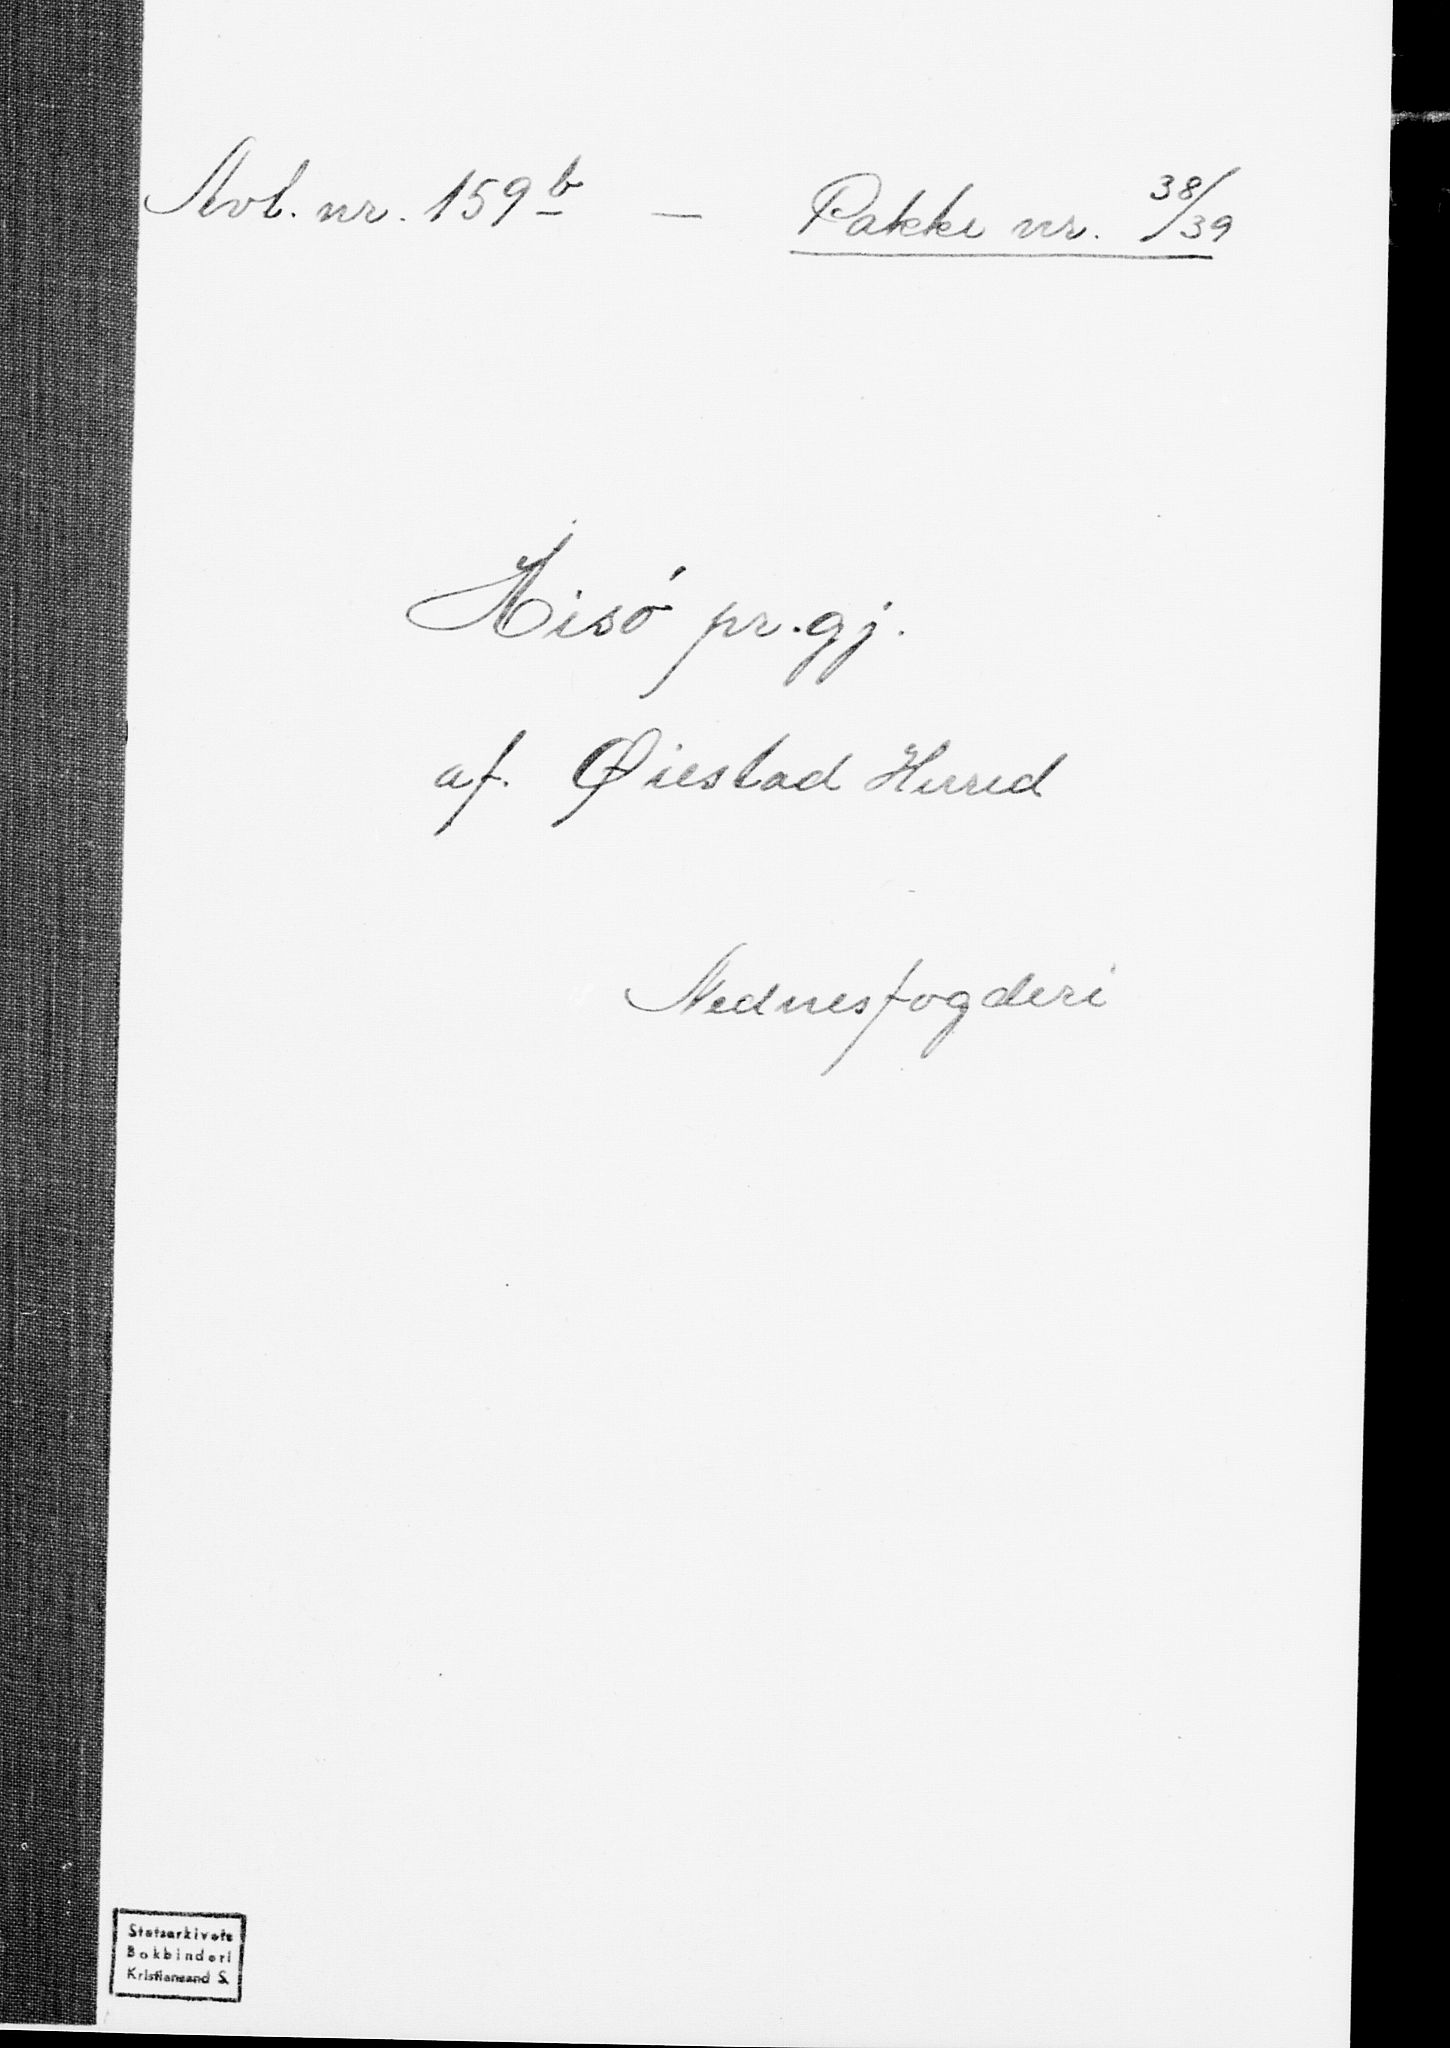 Avl. nr. 159 b — Pakke nr. 38/39
Hisö pr.gj.
af. Øiestad Herred
Nednesfogderi
Statsarkivets
Bokbinderi
Kristiansand S.